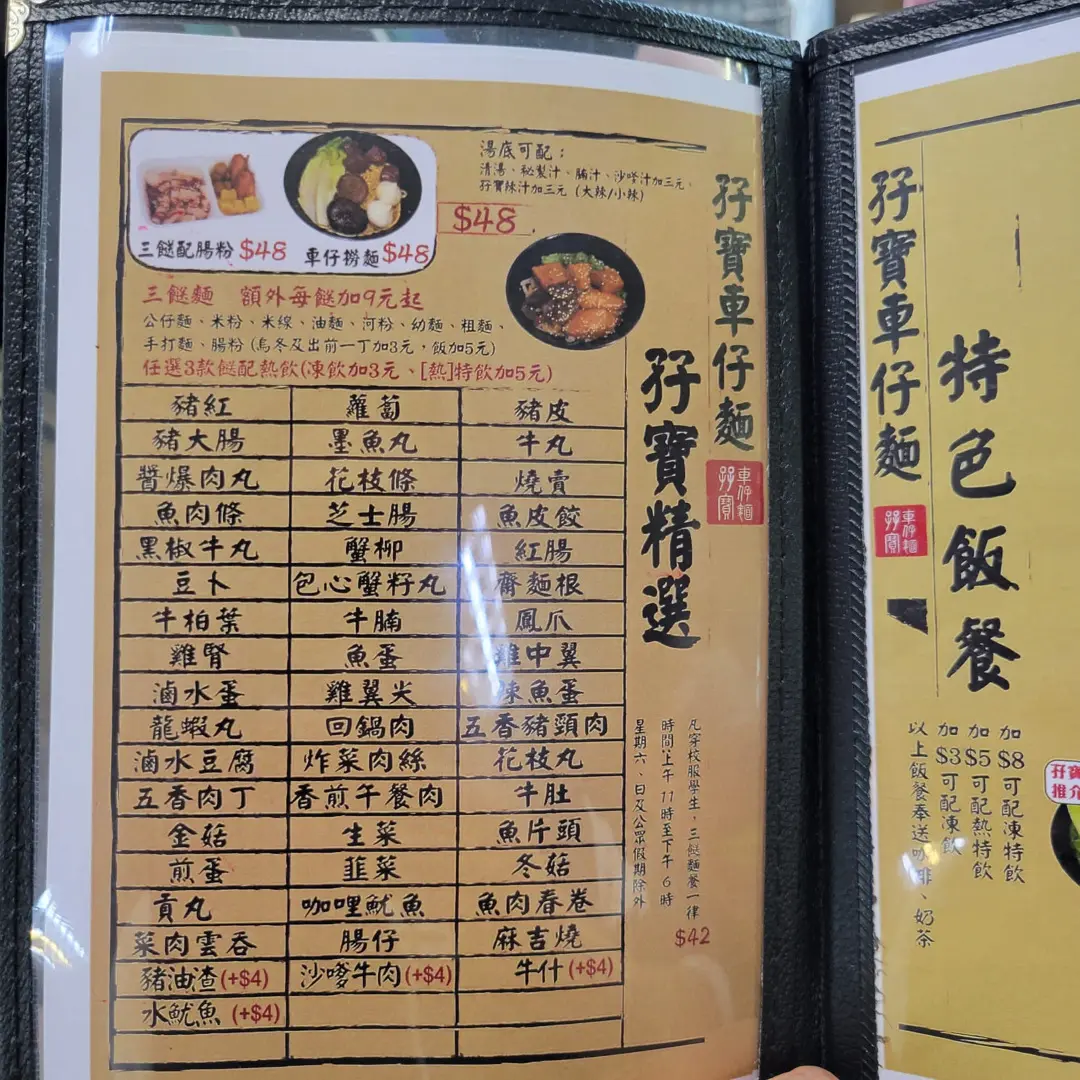 湯底可配：
清湯、秘製汁、腩汁、沙嗲汁加三元、
孖寶辣汁加三元（大辣/小辣）
$48
三餸配腸粉 $48
車仔撈麵 $48
三餸麵 額外每餸加9元起
公仔麵、米粉、米線、油麵、河粉、幼麵、粗麵、
手打麵、腸粉（烏冬及出前一丁加3元，飯加5元）
任選3款餸配熱飲(凍飲加3元、[熱]特飲加5元)
豬紅 蘿蔔 豬皮
豬大腸 墨魚丸 牛丸
醬爆肉丸 花枝條 燒賣
魚肉條 芝士腸 魚皮餃
黑椒牛丸 蟹柳 紅腸
豆卜 包心蟹籽丸 齋麵根
牛柏葉 牛腩 鳳爪
雞腎 魚蛋 雞中翼
滷水蛋 雞翼尖 辣魚蛋
龍蝦丸 回鍋肉 五香豬頸肉
滷水豆腐 炸菜肉絲 花枝丸
五香肉丁 香煎午餐肉 牛肚
金菇 生菜 魚片頭
煎蛋 韮菜 冬菇
貢丸 咖哩魷魚 魚肉春卷
菜肉雲吞 腸仔 麻吉燒
豬油渣(+$4) 沙嗲牛肉(+$4) 牛什(+$4)
水魷魚(+$4)
孖寶車仔麵
車仔麵
孖寶
孖寶精選
凡穿校服學生，三餸麵餐一律
$42
時間上午11時至下午6時
星期六、日及公眾假期除外
孖寶車仔麵
車仔麵
孖寶
特色飯餐
加$8可配凍特飲
加$5可配熱特飲
加$3可配凍飲
以上飯餐奉送咖啡、奶茶
推介